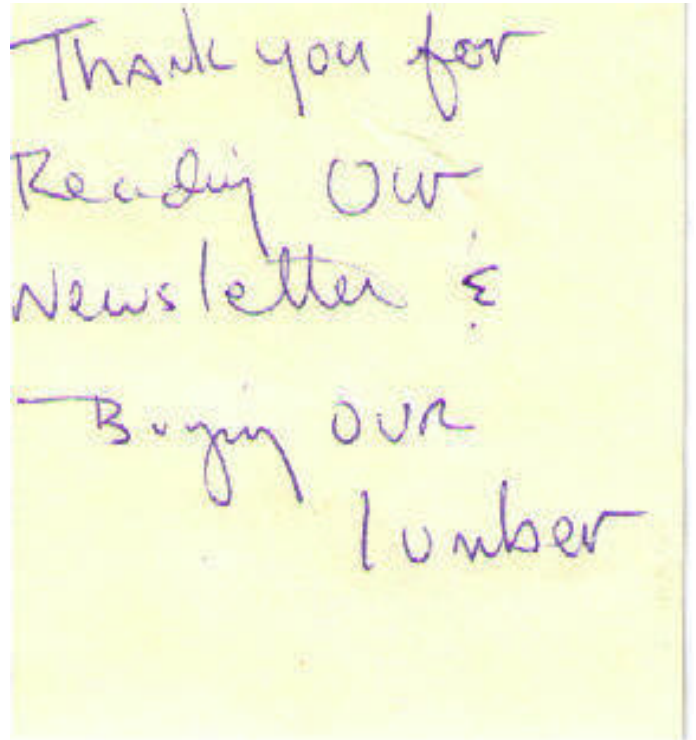 Thank you for
Reading our
Newsletter &
Buying our
lumber